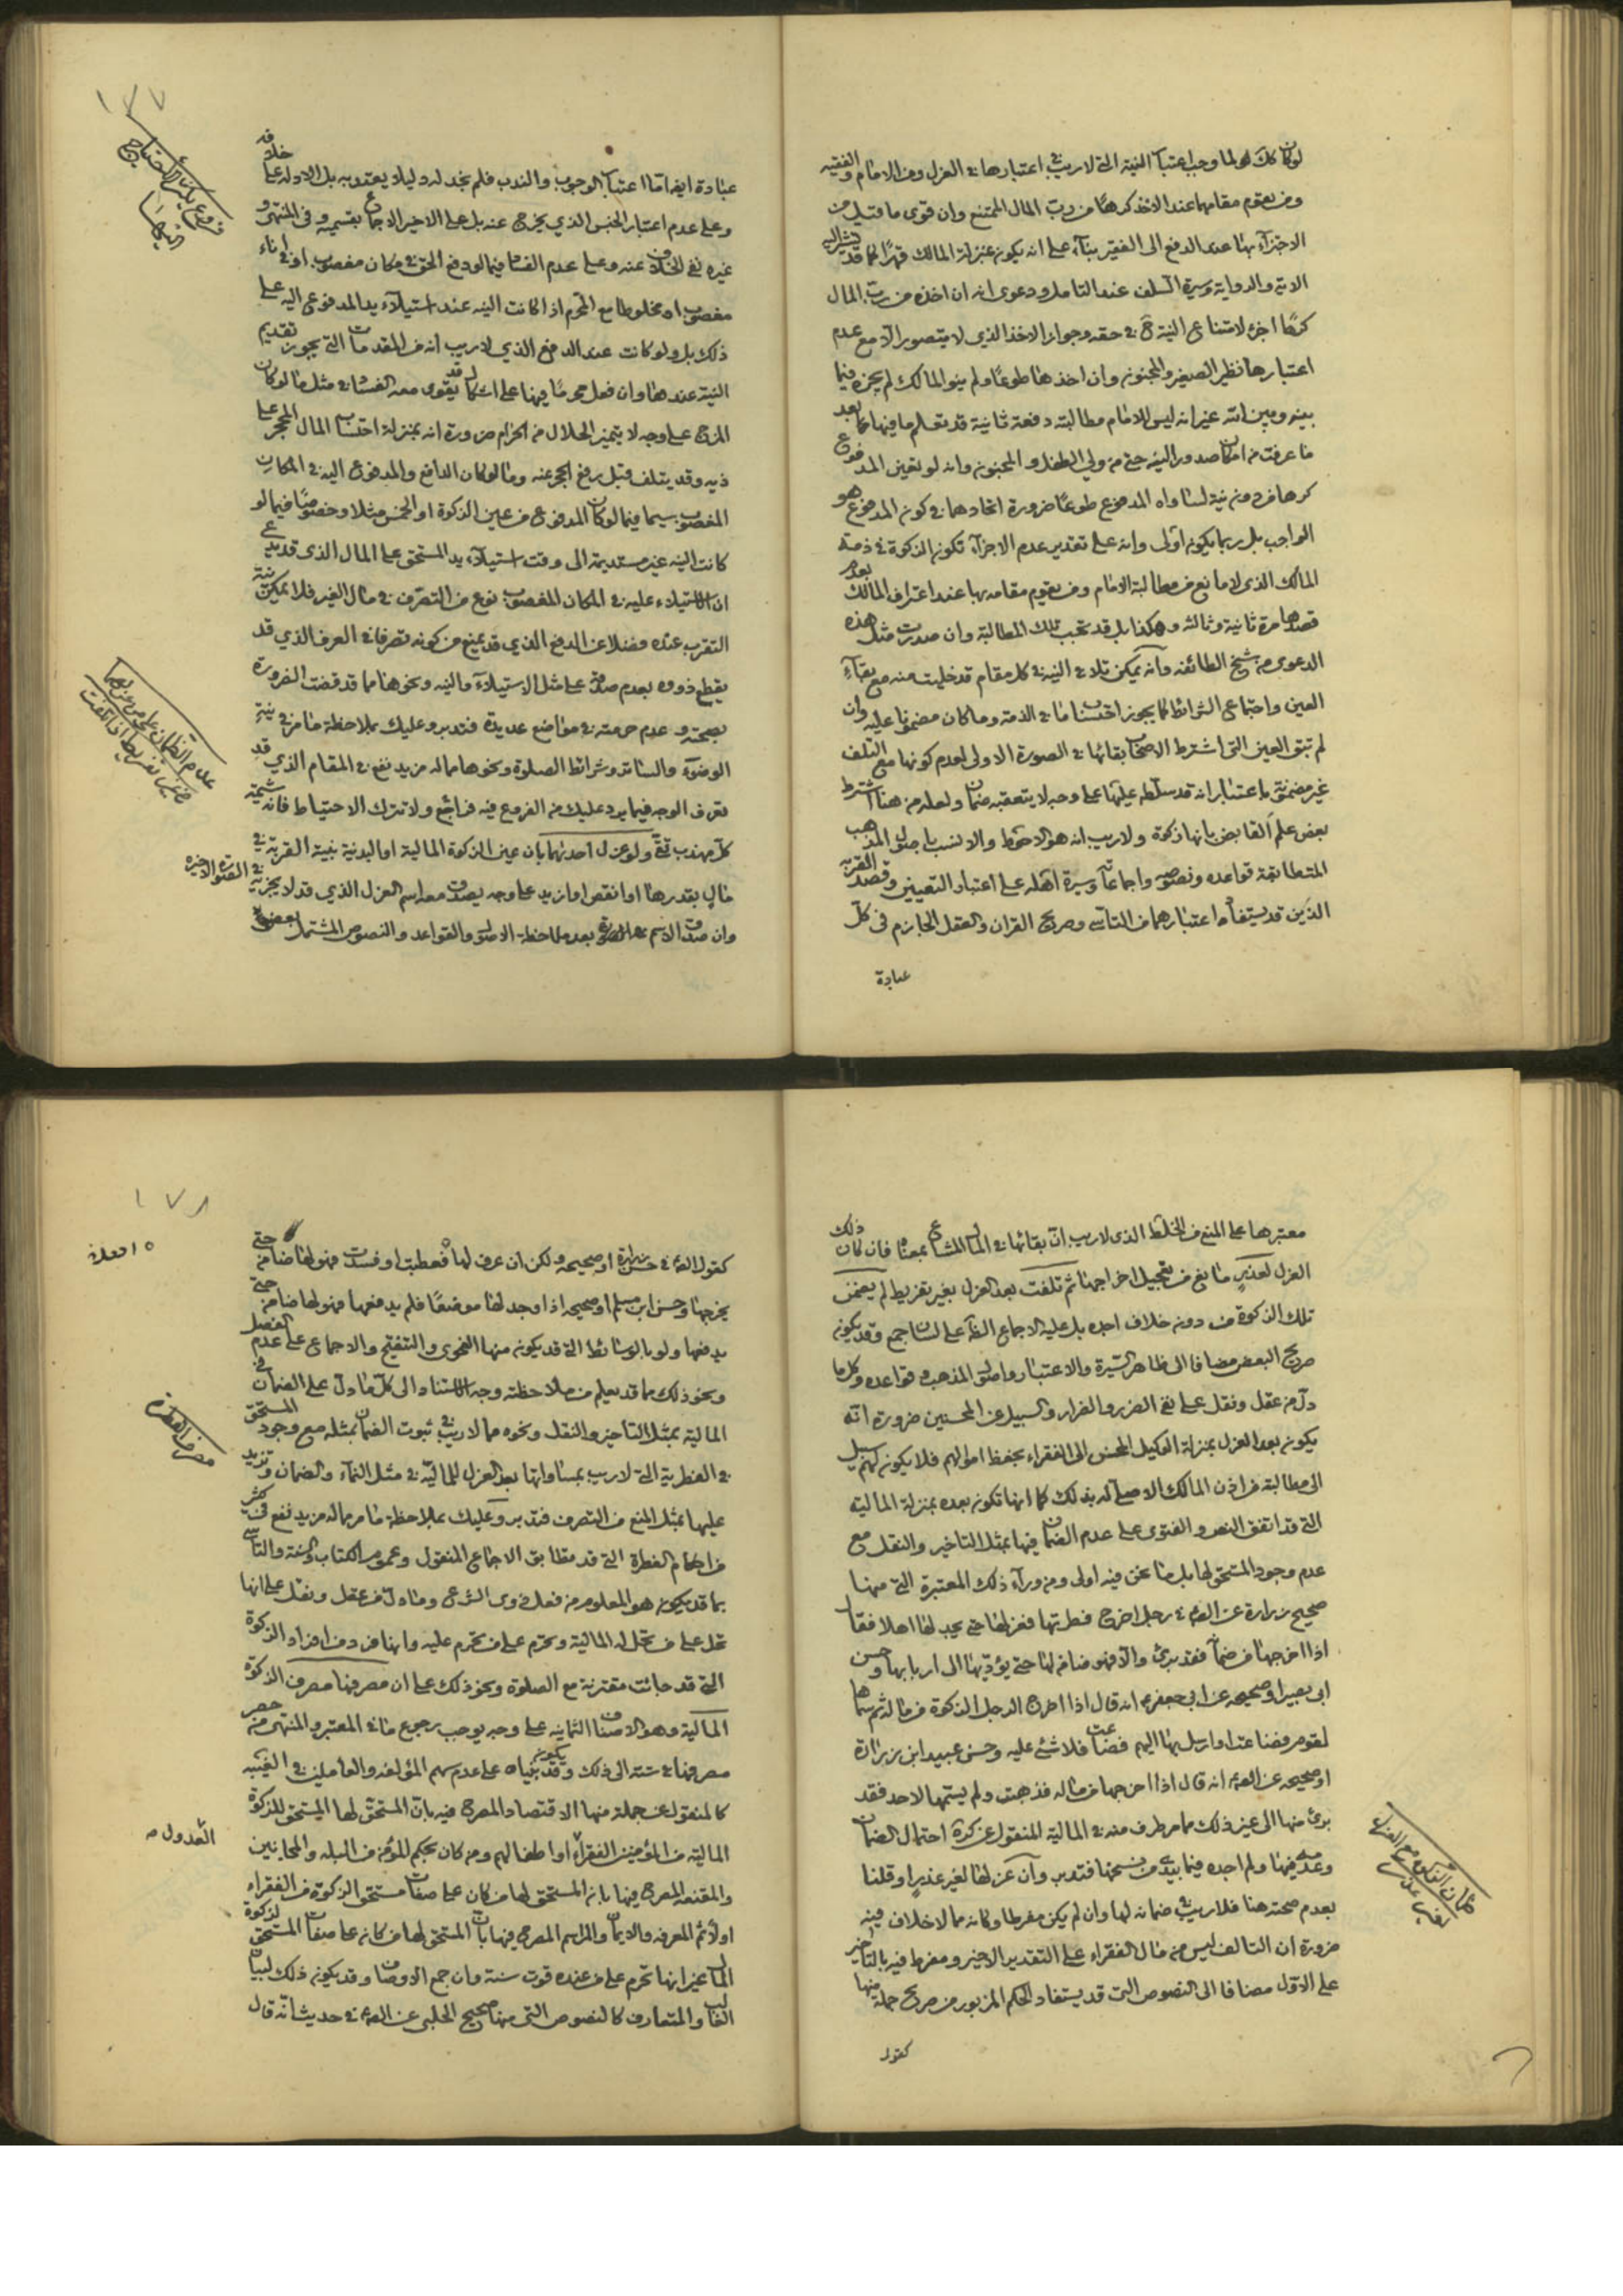 لوكان كك لهم لما وجب اعتبار النية التي لا ريب في اعتبارها في العزل ومن الامام والفقيه
ومن يقوم مقامهما عند الاخذ كرها من رب المال الممتنع وان قوى ما قيل من
الاجتزاء بها عند الدفع الى الفقير بناء على انه يكون بمنزلة المالك قهرا كما قد تشير اليه
الاية والرواية وسيرة السلف عند التامل ودعوى انه ان اخذه من رب المال
كرها اجزء لامتناع النية ح في حقه وجواز الاخذ الذي لا يتصور الا مع عدم
اعتبارها نظير الصغير والمجنون وان اخذها طوعا ولم ينو المالك لم يجزه فيما
بينه وبين الله غير انه ليس للامام مطالبته دفعة ثانية قد تعلم ما فيها مما بعد
ما عرفت من امكان صدور النية حتى من ولي الطفل والمجنون وانه لو تعين المدفوع
كرها من دون نية لساواه المدفوع طوعا ضرورة اتحادهما في كون المدفوع هو
الواجب بل ربما يكون اولى وانه على تقدير عدم الاجزاء تكون الزكوة في ذمة
المالك الذي لا مانع من مطالبة الامام ومن يقوم مقامه بها عند اعتراف المالك بعدم
قصدها مرة ثانية وثالثة وهكذا بل قد تجب تلك المطالبة وان صدرت مثل هذه
الدعوى من شيخ الطائفة وانه يمكن تلافي النية في كل مقام قد خليت منه مع بقاء
العين واجتماع الشرائط كما يجوز احتساب ما في الذمة وما كان مضمونا عليه وان
لم تبق العين التي اشترط الاصحاب بقائها في الصورة الاولى لعدم كونها مع التلف
غير مضمونة باعتبار انه قد سلطه عليها على وجه لا يتعقبه ضمان ولعله من هنا اشترط
بعض علم القابض بانها زكوة ولا ريب انه هو الاحوط والانسب باصول المذهب
المتطابقة قواعده ونصوصه واجماعاته وسيرة اهله على اعتبار التعيين وقصد القربة
الذين قد يستفاد اعتبارهما من التاسي وصريح القران والعقل الجازم في كل
عبادة
١٧٧
عبادة ايضا اما اعتبار الوجوب والندب فلم نجد له دليلا يعتد به بل الادلة على خلافه
وعلى عدم اعتبار الجنس الذي يخرج عنه بل على الاخير الاجماع بقسميه وفي المنتهى و
غيره نفي الخلاف عنه وعلى عدم الفساد فيما لو دفع الحق في مكان مغصوب او في اناء
مغصوب او مخلوطا مع المحرم اذا كانت النية عند استيلاء يد المدفوع اليه على
ذلك بل ولو كانت عند الدفع الذي لا ريب انه من المقدمات التي يجوز تقديم
النية عندها وان فعل محرما فيها على اشكال قد يقوى معه الفساد في مثل ما لو كان
المزج على وجه لا يتميز الحلال من الحرام ضرورة انه بمنزلة احتساب المال المحجر على
ذيه وقد يتلف قبل رفع الحجر عنه وما لو كان الدافع والمدفوع اليه في المكان
المغصوب سيما فيما لو كان المدفوع من عين الزكوة او الخمس مثلا وخصوصا فيما لو
كانت النية غير مستديمة الى وقت استيلاء يد المستحق على المال الذي قد يدعى
ان الاستيلاء عليه في المكان المغصوب نوع من التصرف في مال الغير فلا يمكن نية
التقرب عنده فضلا عن الدفع الذي قد يمنع من كونه تصرفا في العرف الذي قد
يقطع ذووه بعدم صدقه على مثل الاستيلاء والنية ونحوهما مما قد قضت الضرورة
بصحته وعدم حرمته في مواضع عديدة فتدبر وعليك بملاحظة ما مر في نية
الوضوء والساتر وشرائط الصلوة ونحوها مما له مزيد نفع في المقام الذي قد
تعرف الوجه فيما يرد عليك من الفروع فيه فراجع ولا تترك الاحتياط فانه شيمة
كل مهذب تقي ولو عزل احدنهما بان عين الزكوة المالية او البدنية بنية القربة في
مال بقدرها او انقص او ازيد على وجه يصدق معه اسم العزل الذي قد لا يجزيه في الصورة الاخيرة
وان صدق الاسم بعد ملاحظة الاصول والقواعد والنصوص المشتمل بعض
عدم الضمان على من عزلها من غير تفريط اذا تلفت
١٧٨
معتبرها على المنع من الخلط الذي لا ريب ان بقائها في المال المشاع بمعناه فان كان ذلك
العزل لعذر مانع من تعجيل اخراجها ثم تلفت بعد العزل بغير تفريط لم يضمن
تلك الزكوة من دون خلاف اجده بل عليه الاجماع الظاهر على لسان جمع وقد يكون
صريح البعض مضافا الى ظاهر السيرة والاعتبار واصول المذهب وقواعده وكل ما
دل من عقل ونقل على نفي الضرر والضرار والسبيل عن المحسنين ضرورة انه
يكون بعد العزل بمنزلة الوكيل المحسن الى الفقراء بحفظ اموالهم فلا يكون لهم سبيل
الى مطالبته من اذن المالك الاصلي له بذلك كما انها تكون بعده بمنزلة المالية
التي قد اتفق النص والفتوى على عدم الضمان فيها بمثل التاخير والنقل مع
عدم وجود المستحق لها بل ما نحن فيه اولى ومن وراء ذلك المعتبرة التي منها
صحيح زرارة عن الص ع في رجل اخرج فطرتها فعزلها حتى يجد لها اهلا فقال
اذا اخرجها من ضمانه فقد برئ والا فهو ضامن لها حتى يؤديها الى اربابها وحسن
ابي بصير او صحيحه عن ابي جعفر ع انه قال اذا اخرج الرجل الزكوة من ماله ثم سماها
لقوم فضاعت او ارسل بها اليهم فضاعت فلا شئ عليه وحسن عبيد ابن زرارة
او صحيحه عن الص ع انه قال اذا اخرجها من ماله فذهبت ولم يسمها لاحد فقد
برئ منها الى غير ذلك مما مر طرف منه في المالية المنقول عن كرة احتمال الضمان
وعدمه فيها ولم اجده فيما بيدي من نسخها فتدبر وان عزلها لغير عذر او قلنا
بعدم صحته هنا فلا ريب في ضمانه لها وان لم يكن مفرطا وكانه مما لا خلاف فيه
ضرورة ان التالف ليس من مال الفقراء على التقدير الاخير ومفرط فيه بالتاخير
على الاول مضافا الى النصوص التي قد يستفاد الحكم المزبور من صريح جملة منها
كقول
كقول الص ع في حسن زرارة او صحيحه ولكن ان عرف لها فعطبت او فسدت فهو لها ضامن حتى
يخرجها وحسن ابن مسلم او صحيحه اذا وجد لها موضعا فلم يدفعها فهو لها ضامن حتى
يدفعها ولو بالوسائط التي قد يكون منها الفحوى والتنقيح والاجماع على عدم الفصل
ونحو ذلك مما قد يعلم من ملاحظته وجه الاستناد الى كل ما دل على الضمان في
المالية بمثل التاخير والنقل ونحوه مما لا ريب في ثبوت الضمان بمثله مع وجود المستحق
في الفطرية التي لا ريب بمساواتها بعد العزل للمالية في مثل النماء والضمان وتزيد
عليها بمثل المنع من التصرف فتدبر وعليك بملاحظة ما مر مما له مزيد نفع في كثير
من احكام الفطرة التي قد تطابق الاجماع المنقول وعموم الكتاب والسنة والتاسي
بما قد يكون هو المعلوم من فعل ذوي الشرع وما دل من عقل ونقل على انها
تحل على من تحل له المالية وتحرم على من تحرم عليه وانها فرد من افراد الزكوة
التي قد جائت مقترنة مع الصلوة ونحو ذلك على ان مصرفها مصرف الزكوة
المالية وهو الاصناف الثمانية على وجه يوجب رجوع ما في المعتبر والمنتهى من حصر
مصرفها في ستة الى ذلك وقد يكون بنياه على عدم سهم المؤلفة والعاملين في الغيبة
كالمنقول عن جملة منها الاقتصاد المصرح فيه بان المستحق لها المستحق للزكوة
المالية من المؤمنين الفقراء او اطفالهم ومن كان بحكم المؤمن من البله والمجانين
والمقنعة المصرح فيها بانه المستحق لها من كان على صفات مستحق الزكوة من الفقراء
اولا ثم المعرفة والايمان والمراسم المصرح فيها بان المستحق لها من كانه على صفات المستحق لزكوة
المال غير انها تحرم على من عنده قوت سنة وان جمع الاوصاف وقد يكون ذلك لبيان
الغالب والمتعارف كالنصوص التي منها صحيح الحلبي عن الص ع في حديث انه قال
مصرف الفطرة
العدول